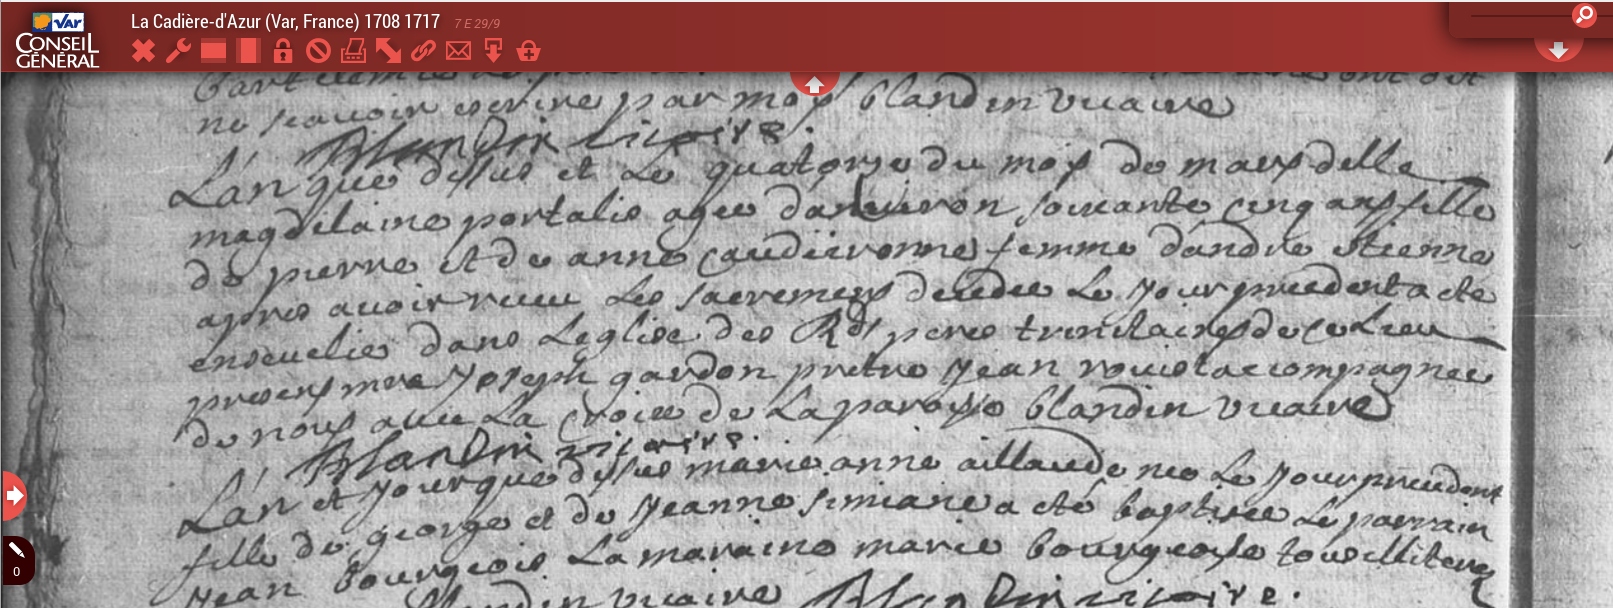 La Cadière-d'Azur (Var, France) 1708 1717 7 E 29/9
VAR
CONSEIL
GÉNÉRAL
ont dit
ne scavoir escrire par moy blandin vicaire
Blandin vicaire.
L'an que dessus et le quatorze du mois de mars delle
magdelaine portalis agee d'environ soixante cinq ans fille
de pierre et de anne caudeironne femme d'andre etienne
apres avoir receu les sacremens decedee le jour precedent a ete
ensevelie dans l'eglise des Rds peres trinitaires de ce lieu
presens mre Joseph gardon pretre jean accompagnee
de nous avec la croix de la paroisse blandin vicaire
Blandin vicaire.
L'an et jour que dessus marie anne aillaude nee le jour precedent
fille de george et de jeanne simiane a ete baptisee le parrain
jean bourgeois la maraine marie bourgeoise tous illiteres
blandin vicaire Blandin vicaire.
0